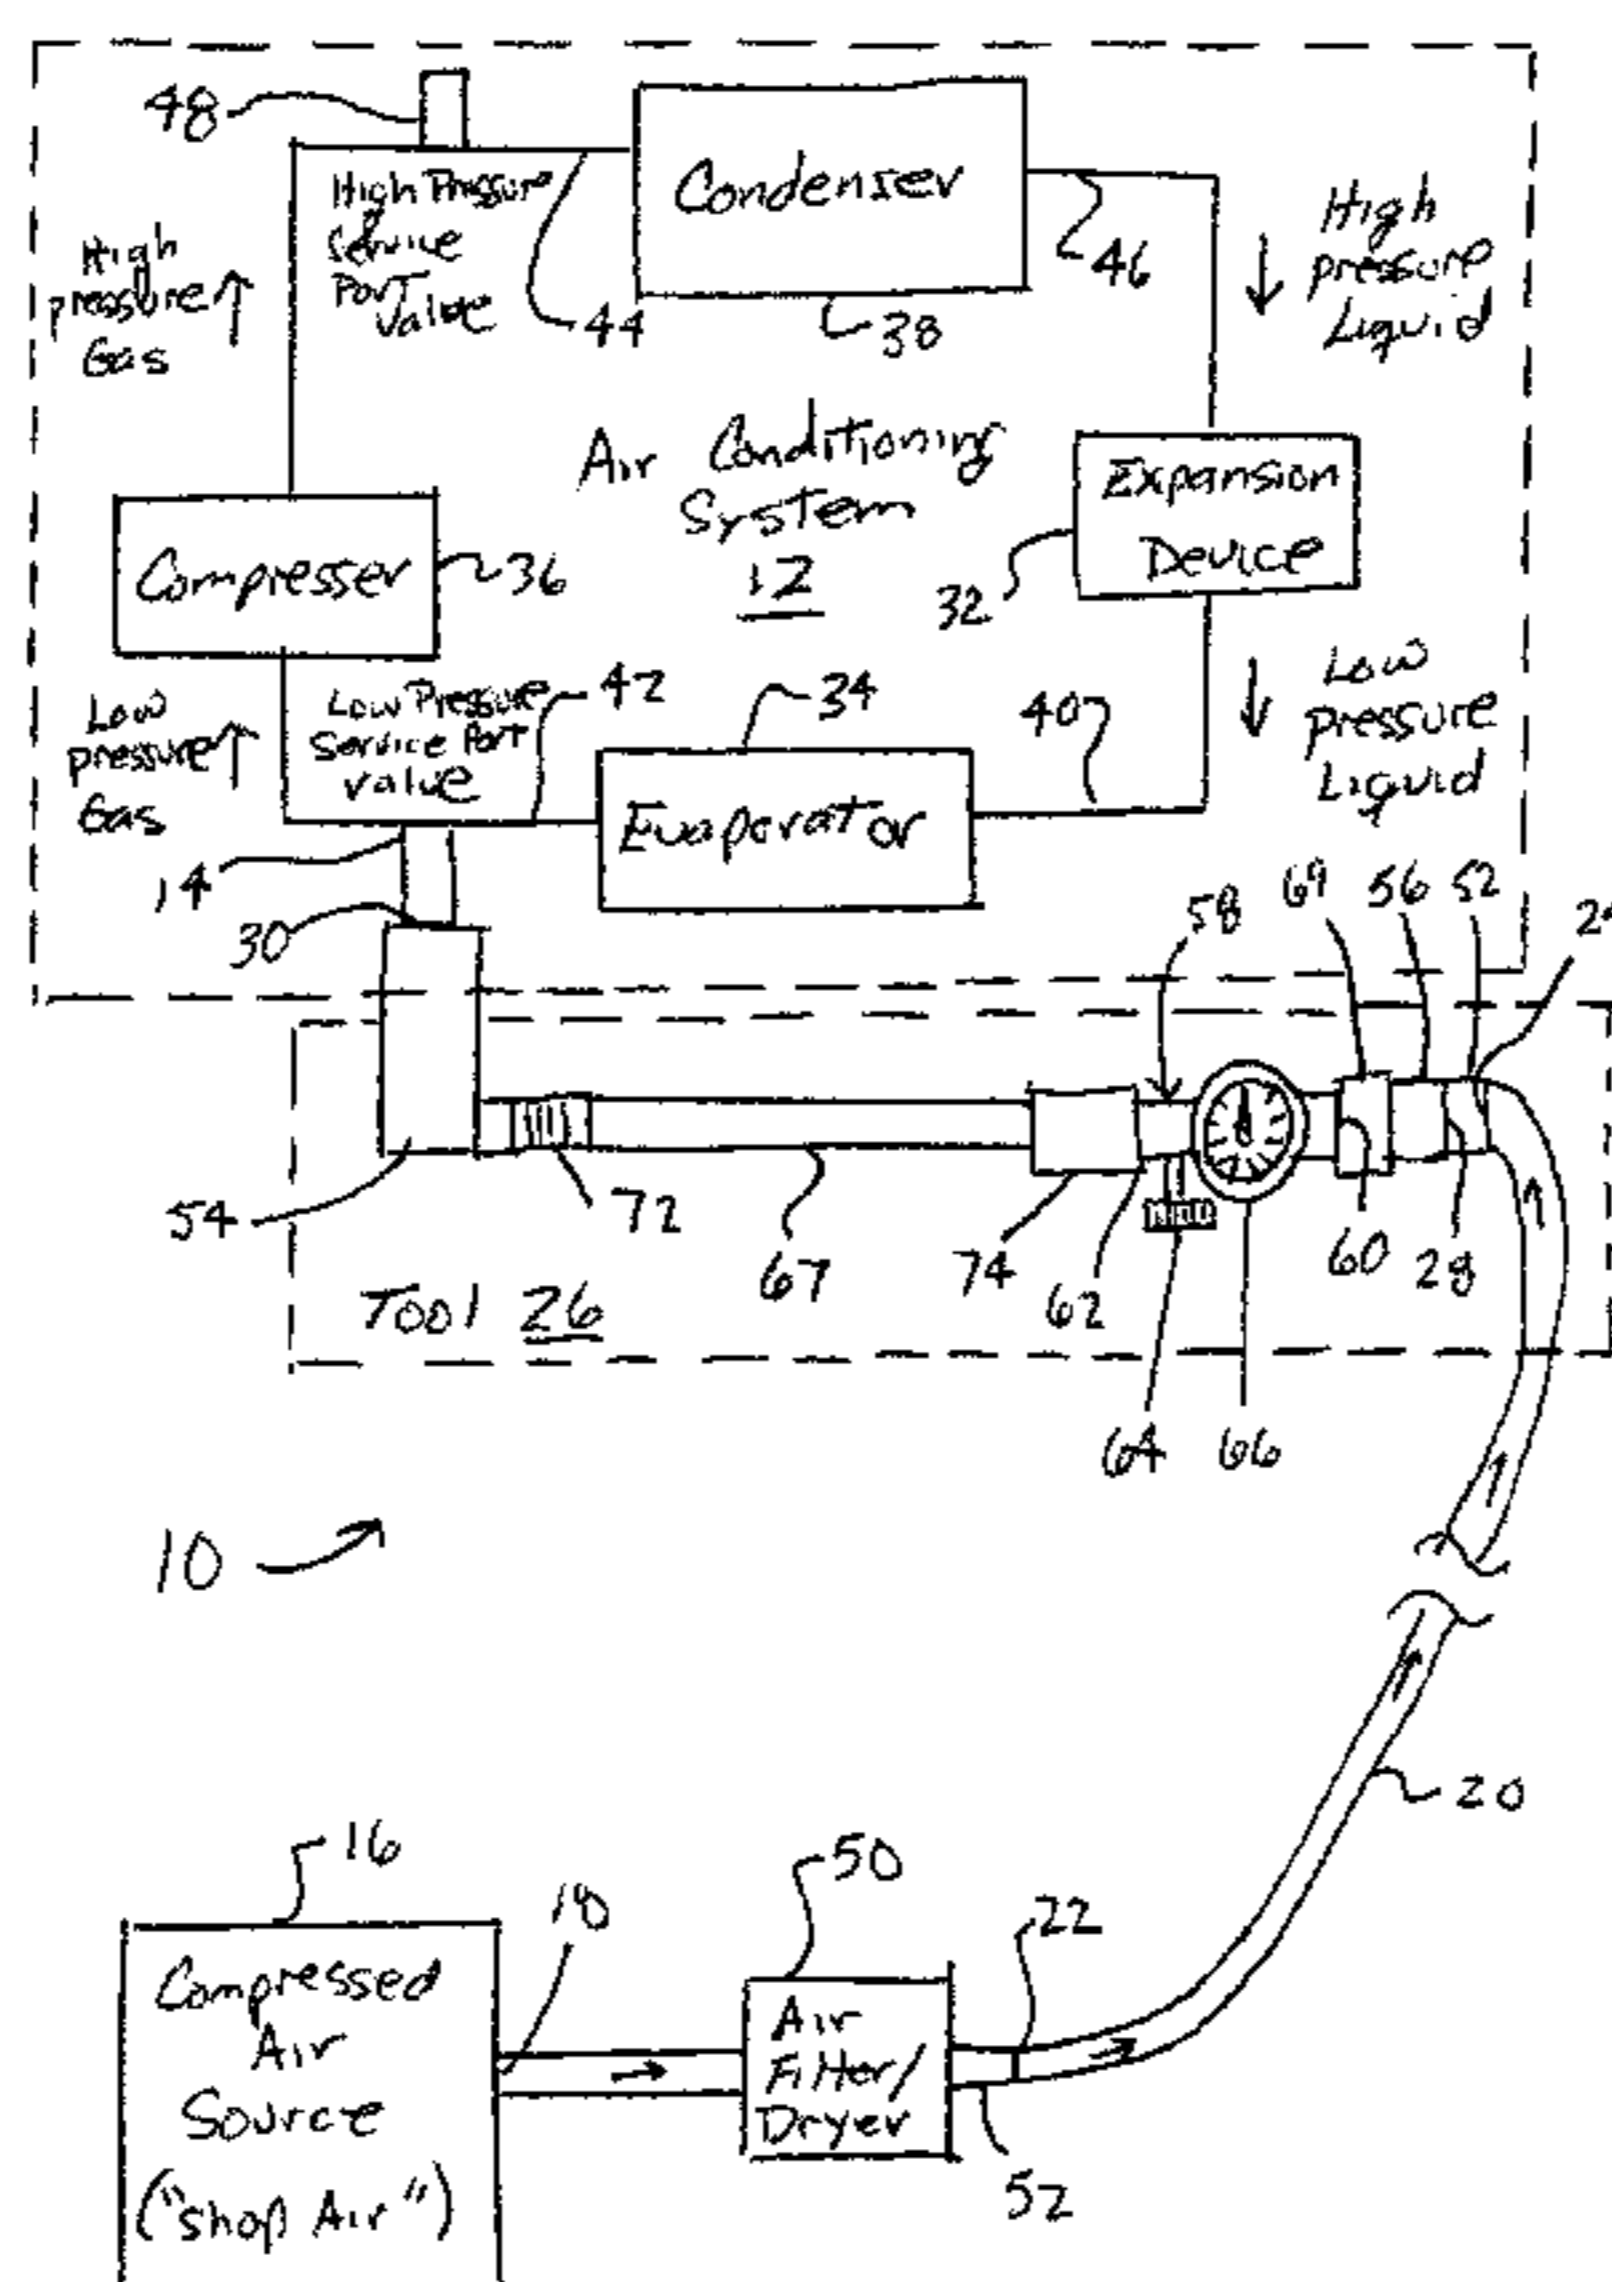 48
High Pressure
Service
Port
Valve
Condenser
High
pressure
Gas
44
38
46
High
pressure
Liquid
Air Conditioning
System
12
Compresser
36
Expansion
Device
32
Low
pressure
Gas
Low Pressure
Service Port
Valve
42
34
40
Low
Pressure
Liquid
Evaporator
14
30
58
69
56
52
54
72
67
74
62
60
28
Tool 26
64
66
10
20
16
18
50
22
Compressed
Air
Source
("Shop Air")
Air
Filter/
Dryer
52